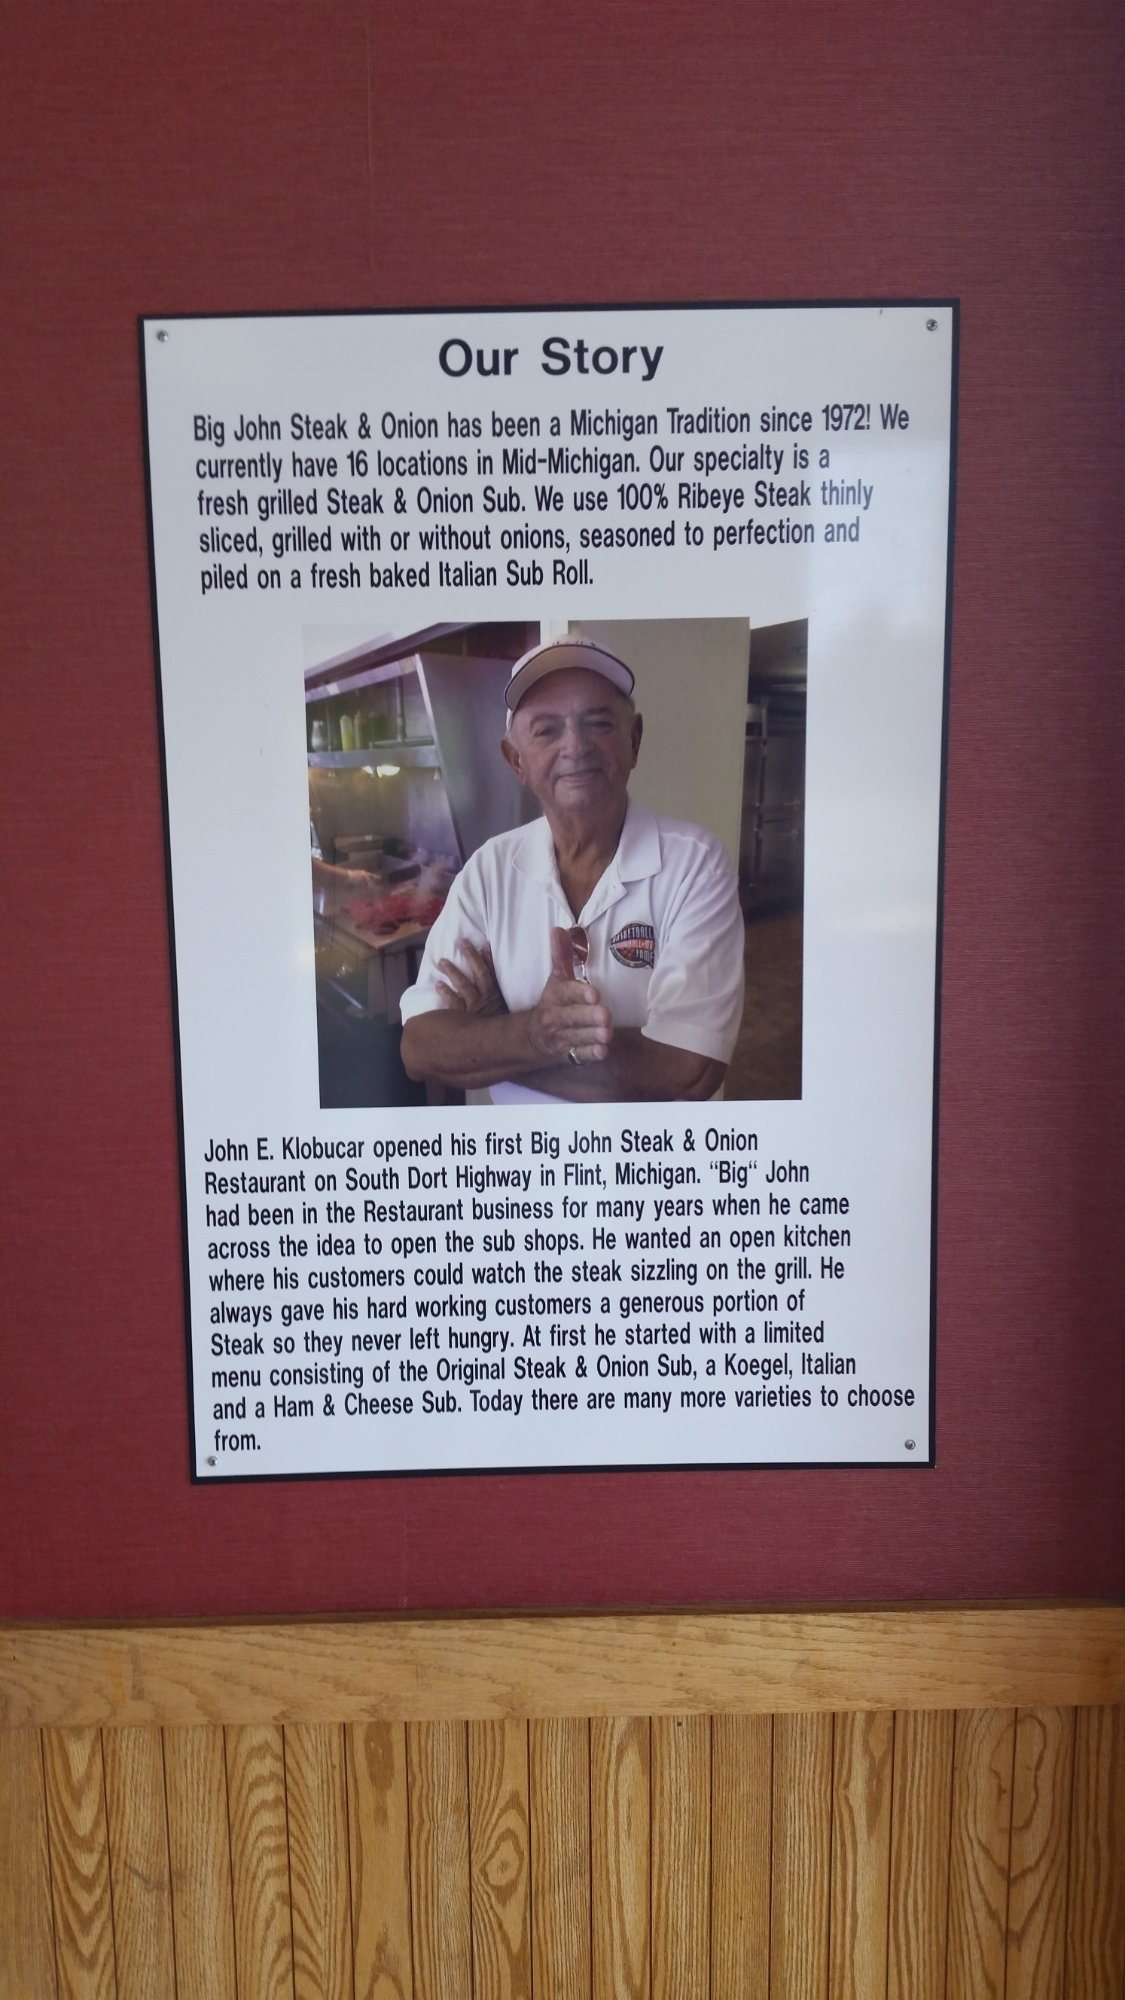 Our Story
Big John Steak & Onion has been a Michigan Tradition since 1972! We
currently have 16 locations in Mid-Michigan. Our specialty is a
fresh grilled Steak & Onion Sub. We use 100% Ribeye Steak thinly
sliced, grilled with or without onions, seasoned to perfection and
piled on a fresh baked Italian Sub Roll.
BASKETBALL
HALL OF
FAME
John E. Klobucar opened his first Big John Steak & Onion
Restaurant on South Dort Highway in Flint, Michigan. “Big“ John
had been in the Restaurant business for many years when he came
across the idea to open the sub shops. He wanted an open kitchen
where his customers could watch the steak sizzling on the grill. He
always gave his hard working customers a generous portion of
Steak so they never left hungry. At first he started with a limited
menu consisting of the Original Steak & Onion Sub, a Koegel, Italian
and a Ham & Cheese Sub. Today there are many more varieties to choose
from.